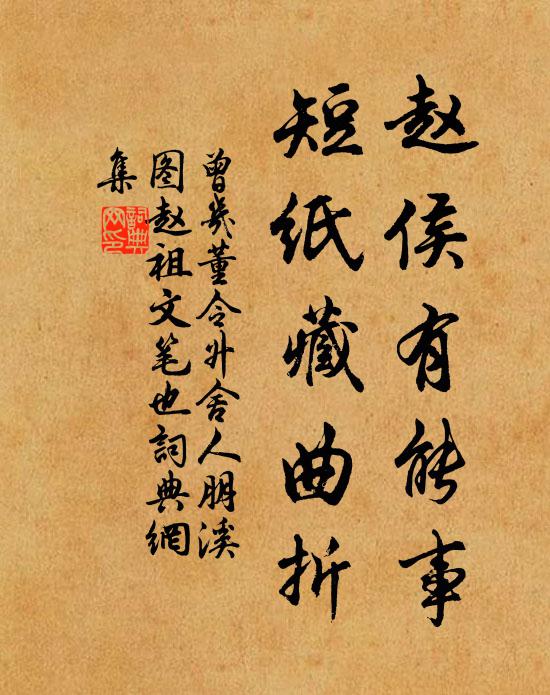 赵侯有能事
短纸藏曲折
曾幾董令升舍人朋溪
图赵祖文笔也詞典網
集
詞典網印